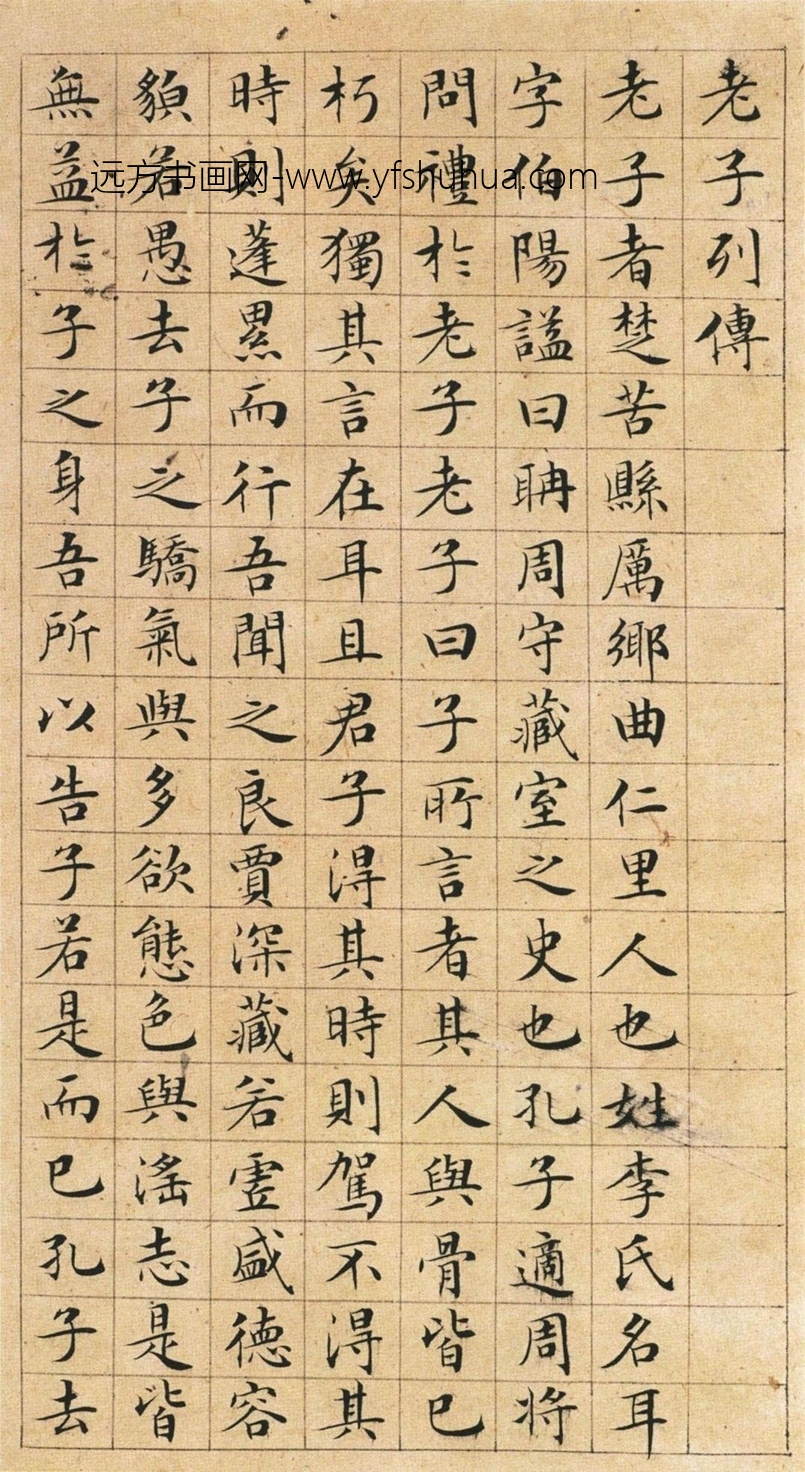 老子列傳
老子者楚苦縣厲鄉曲仁里人也姓李氏名耳
字伯陽謚曰聃周守藏室之史也孔子適周将
問禮於老子老子曰子所言者其人與骨皆已
朽矣獨其言在耳且君子得其時則駕不得其
時則蓬累而行吾聞之良賈深藏若虛盛德容
貌若愚去子之驕氣與多欲態色與滛志是皆
無益於子之身吾所以告子若是而已孔子去
远方书画网-www.yfshuhua.com